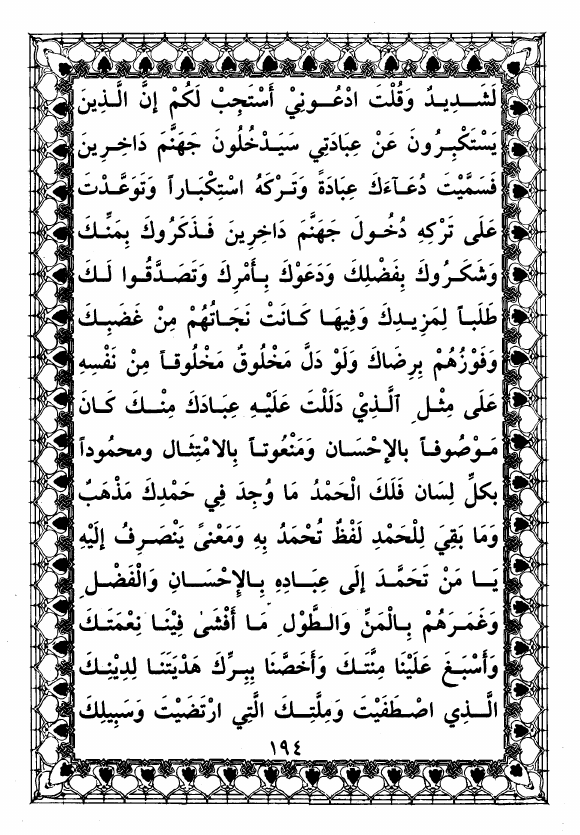 لَشَدِيدٌ وَقُلْتَ ادْعُونِيْ أَسْتَجِبْ لَكُمْ إِنَّ الَّذِينَ
يَسْتَكْبِرُونَ عَنْ عِبَادَتِي سَيَدْخُلُونَ جَهَنَّمَ دَاخِرِينَ
فَسَمَّيْتَ دُعَآءَكَ عِبَادَةً وَتَرْكَهُ اسْتِكْبَاراً وَتَوَعَّدْتَ
عَلَى تَرْكِهِ دُخُولَ جَهَنَّمَ دَاخِرِينَ فَذَكَرُوكَ بِمَنِّكَ
وَشَكَرُوكَ بِفَضْلِكَ وَدَعَوْكَ بِأَمْرِكَ وَتَصَدَّقُوا لَكَ
طَلَباً لِمَزِيدِكَ وَفِيهَا كَانَتْ نَجَاتُهُمْ مِنْ غَضَبِكَ
وَفَوْزُهُمْ بِرِضَاكَ وَلَوْ دَلَّ مَخْلُوقٌ مَخْلُوقاً مِنْ نَفْسِهِ
عَلَى مِثْلِ الَّذِيْ دَلَلْتَ عَلَيْهِ عِبَادَكَ مِنْكَ كَانَ
مَوْصُوفاً بالإِحْسَان وَمَنْعُوتاً بِالامْتِثَال ومحمُوداً
بكلِّ لِسَان فَلَكَ الْحَمْدُ مَا وُجِدَ فِي حَمْدِكَ مَذْهَبٌ
وَمَا بَقِيَ لِلْحَمْدِ لَفْظٌ تُحْمَدُ بِهِ وَمَعْنىً يَنْصَرِفُ إلَيْهِ
يَا مَنْ تَحَمَّدَ إلَى عِبَادِهِ بِالإِحْسَانِ وَالْفَضْلِ
وَغَمَرَهُمْ بِالْمَنِّ وَالطَّوْلِ مَا أَفْشَىٰ فِيْنَا نِعْمَتَكَ
وَأَسْبَغَ عَلَيْنَا مِنَّتَكَ وَأَخَصَّنَا بِبِرِّكَ هَدْيَتَنَا لِدِيْنِكَ
الَّذِي اصْطَفَيْتَ وَمِلَّتِكَ الَّتِي ارْتَضَيْتَ وَسَبِيلِكَ
١٩٤